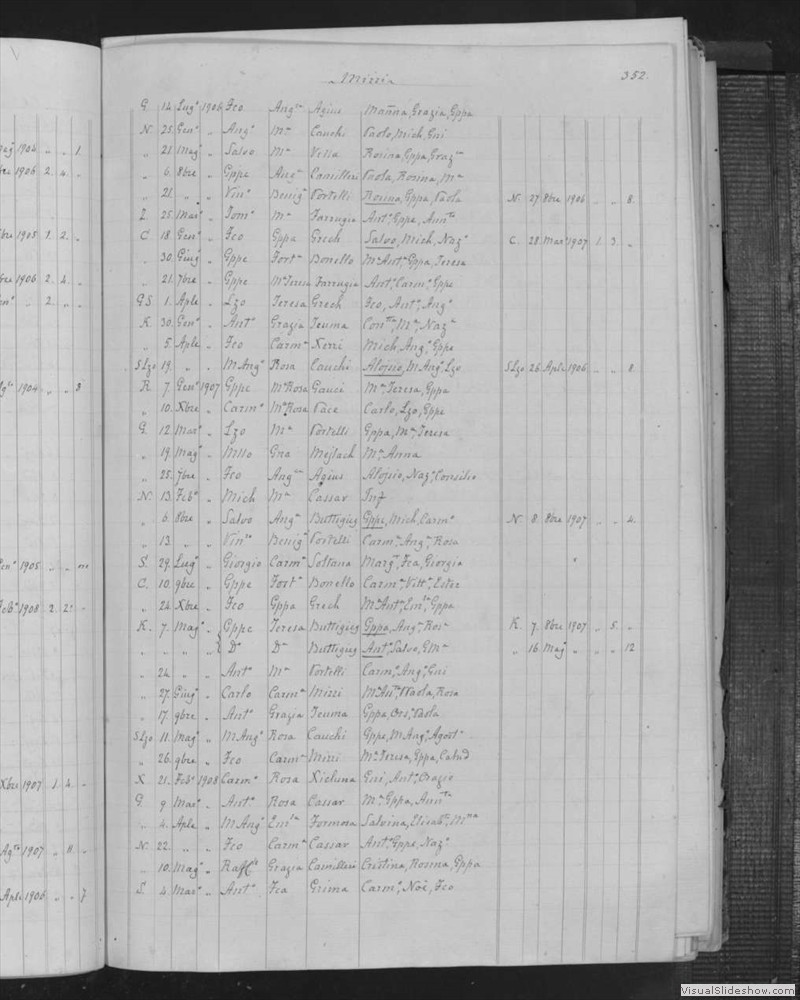 Mizzi 352.
G. 14. Lug° 1906 Fco Ang^la Agius Maña, Grazia, Gppa
N. 25. Gen° „ Ang° M^a Cauchi Paolo, Mich, Gni
„ 21. Mag° „ Salvo M^a Vella Rosina, Gppa, Graz^a
„ 6. 8bre „ Gppe Ang^a Camilleri Paola, Rosina, M^a
„ 21. „ „ Vin° Benig^a Portelli Rosina, Gppa, Paola N. 27. 8bre 1906 „ „ 8.
Z. 25. Mar° „ Tom° M^a Farrugia Ant°, Gppe, Ann^ta
C. 18. Gen° „ Fco Gppa Grech Salvo, Mich, Naz° C. 28. Mar° 1907 1. 3. „
„ 30. Giug° „ Gppe Fort^a Bonello M^a Ant^a, Gppa, Teresa
„ 21. 7bre „ Gppe M^a Teresa Farrugia Ant°, Carm°, Gppe
GS. 1. Aple „ Lzo Teresa Grech Fco, Ant°, Ang°
K. 30. Gen° „ Ant° Grazia Teuma Con^tta, M^a, Naz^a
„ 5. Aple „ Fco Carm^a Xerri Mich, Ang°, Gppe
SLzo 19. „ „ M Ang° Rosa Cauchi Aloisio, M Ang°, Lzo SLzo 26. Aple 1906 „ „ 8
R. 7. Gen° 1907 Gppe M^a Rosa Gauci M^a, Teresa, Gppa
„ 10. Xbre „ Carm° M^a Rosa Pace Carlo, Lzo, Gppe
G. 12. Mar° „ Lzo M^a Portelli Gppa, M^a, Teresa
„ 19. Mag° „ Mllo Gna Mejlach M^a, Anna
„ 25. 7bre „ Fco Ang^la Agius Aloisio, Naz°, Consilio
N. 13. Feb° „ Mich M^a Cassar Inf
„ 6. 8bre „ Salvo Ang^a Buttigieg Gppe, Mich, Carm° N. 8. 8bre 1907 „ „ 4.
„ 13. „ „ Vin^zo Benig^a Portelli Carm^a, Ang^a, Rosa
S. 29. Lug° „ Giorgio Carm^a Sultana Marg^a, Fca, Giorgia
C. 10. 9bre „ Gppe Fort^a Bonello Carm^a, Vitt^a, Ester
„ 24. Xbre „ Fco Gppa Grech M^a Ant^a, Em^la, Gppa
K. 7. Mag° „ Gppe Teresa Buttigieg Gppa, Ang^a, Ros^a K. 7. 8bre 1907 „ 5. „
„ „ „ „ D° D^a Buttigieg Ant°, Salvo, Em^a „ 16. Mag° „ „ „ 12
„ 24. „ „ Ant° M^a Portelli Carm°, Ang°, Gni
„ 27. Giug° „ Carlo Carm^a Mizzi M^a An^ta, Paola, Rosa
„ 17. 9bre „ Ant° Grazia Teuma Gppa, Ors^a, Paola
SLzo 11. Mag° „ M Ang° Rosa Cauchi Gppe, M Ang°, Agost°
„ 26. 9bre „ Fco Carm^a Mizzi M^a Teresa, Gppa, Catad
X. 21. Feb° 1908 Carm° Rosa Xicluna Gni, Ant°, Orazio
G. 9. Mar° „ Ant° Rosa Cassar M^a, Gppa, Ann^ta
„ 4. Aple „ M Ang° Em^la Formosa Salvina, Elisab^a, M^na
N. 22. „ „ Fco Carm^a Cassar Ant°, Gppe, Naz°
„ 10. Mag° „ Raff^le Grazia Camilleri Cristina, Rosina, Gppa
S. 4. Mar° „ Ant° Fca Grima Carm°, Noè, Fco
Mag° 1904 „ „ 1.
1906 2. 4. „
1905 1. 2. „
1906 2. 4. „
„ 2. „
1904 „ „ 3
1905 „ „
Feb° 1908 2. 2. „
Xbre 1907 1. 4. „
Ag^to 1907 „ 11. „
Aple 1906 „ „ 7
VisualSlideshow.com